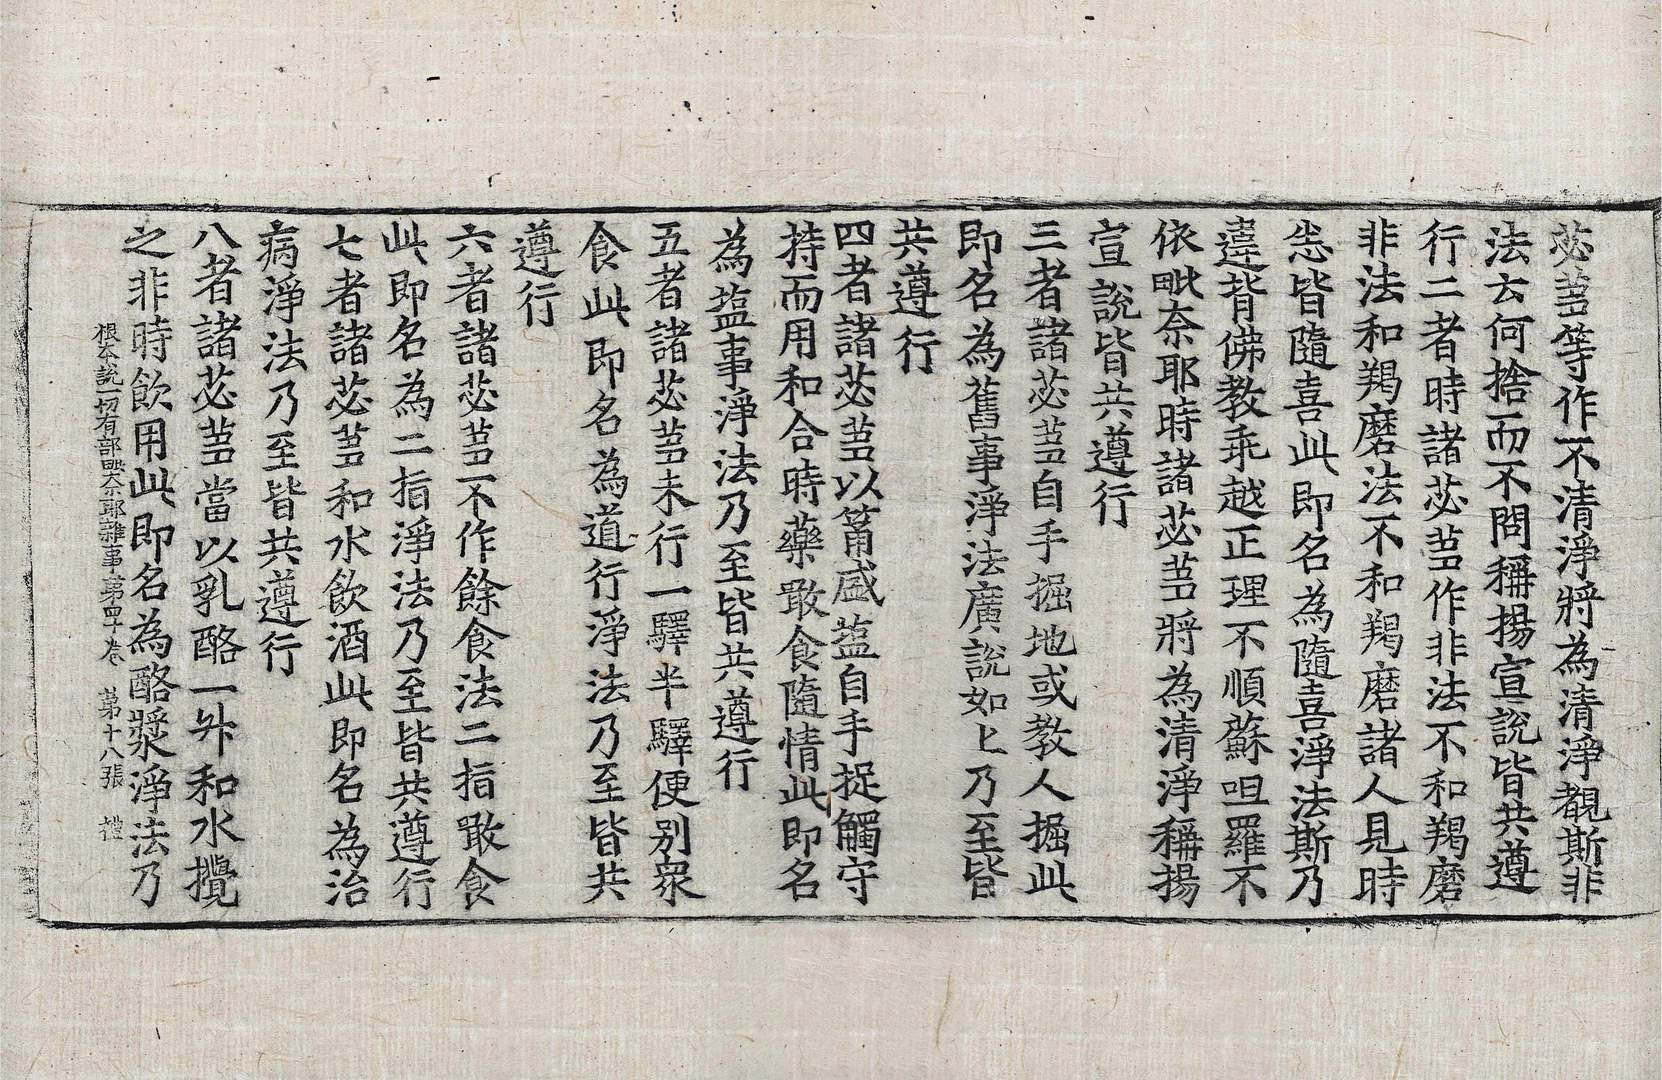 苾芻等作不清淨將為清淨覩斯非
法云何捨而不問稱揚宣說皆共遵
行二者時諸苾芻作非法不和羯磨
非法和羯磨法不和羯磨諸人見時
悉皆隨喜此即名為隨喜淨法斯乃
違背佛教乖越正理不順蘇呾羅不
依毗奈耶時諸苾芻將為清淨稱揚
宣說皆共遵行
三者諸苾芻自手掘地或教人掘此
即名為舊事淨法廣說如上乃至皆
共遵行
四者諸苾芻以筩盛塩自手捉觸守
持而用和合時藥噉食隨情此即名
為塩事淨法乃至皆共遵行
五者諸苾芻未行一驛半驛便別衆
食此即名為道行淨法乃至皆共
遵行
六者諸苾芻不作餘食法二指噉食
此即名為二指淨法乃至皆共遵行
七者諸苾芻和水飲酒此即名為治
病淨法乃至皆共遵行
八者諸苾芻當以乳酪一升和水攪
之非時飲用此即名為酪漿淨法乃
根本說一切有部毗奈耶雜事第四十卷 第十八張 禮